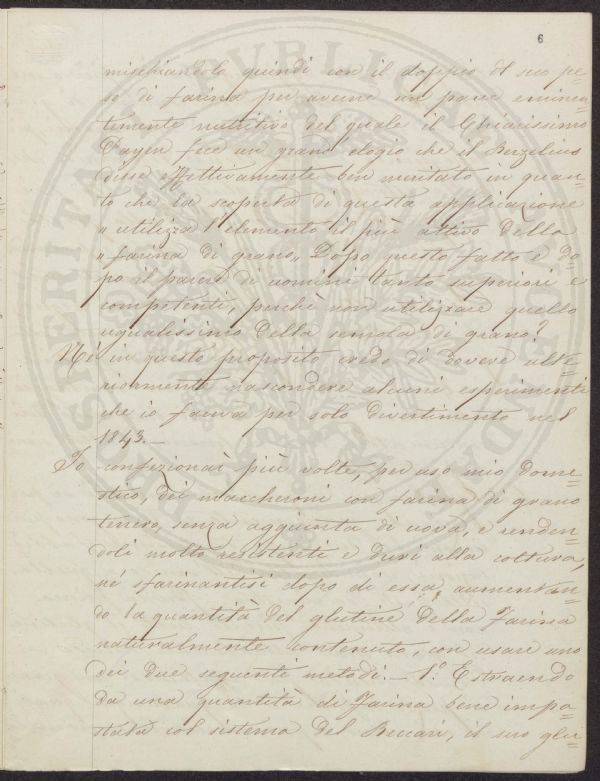 6
mischiandola quindi con il doppio del suo pe=
so di farina per averne un pane eminen=
temente nutritivo del quale il Chiarissimo
Payen fece un grano elogio che il Berzelius
disse effettivamente ben meritato in quan=
to che la scoperta di questa applicazione
" utilizza l'elemento il più attivo della
" farina di grano,, Dopo questo fatto e do=
po il parere di uomini tanto superiori e
competenti, perchè non utilizzare quello
ugualissimo della semola di grano?
Nè in questo proposito credo di dovere ulte=
riormente nascondere alcuni esperimenti
che io faceva per solo divertimento nel
1843.—
Io confezionai più volte, per uso mio dome=
stico, dei maccheroni con farina di grano
tenero, senza aggiunta di uova, e renden=
doli molto resistenti e duri alla cottura,
nè sfarinantisi dopo di essa, aumentan=
do la quantità del glutine della Farina
naturalmente contenuto, con usare uno
dei due seguenti metodi.— 1.° Estraendo
da una quantità di Farina bene impa=
stata col sistema del Beccari, il suo glu=
PROSPERITAS PVBLICA